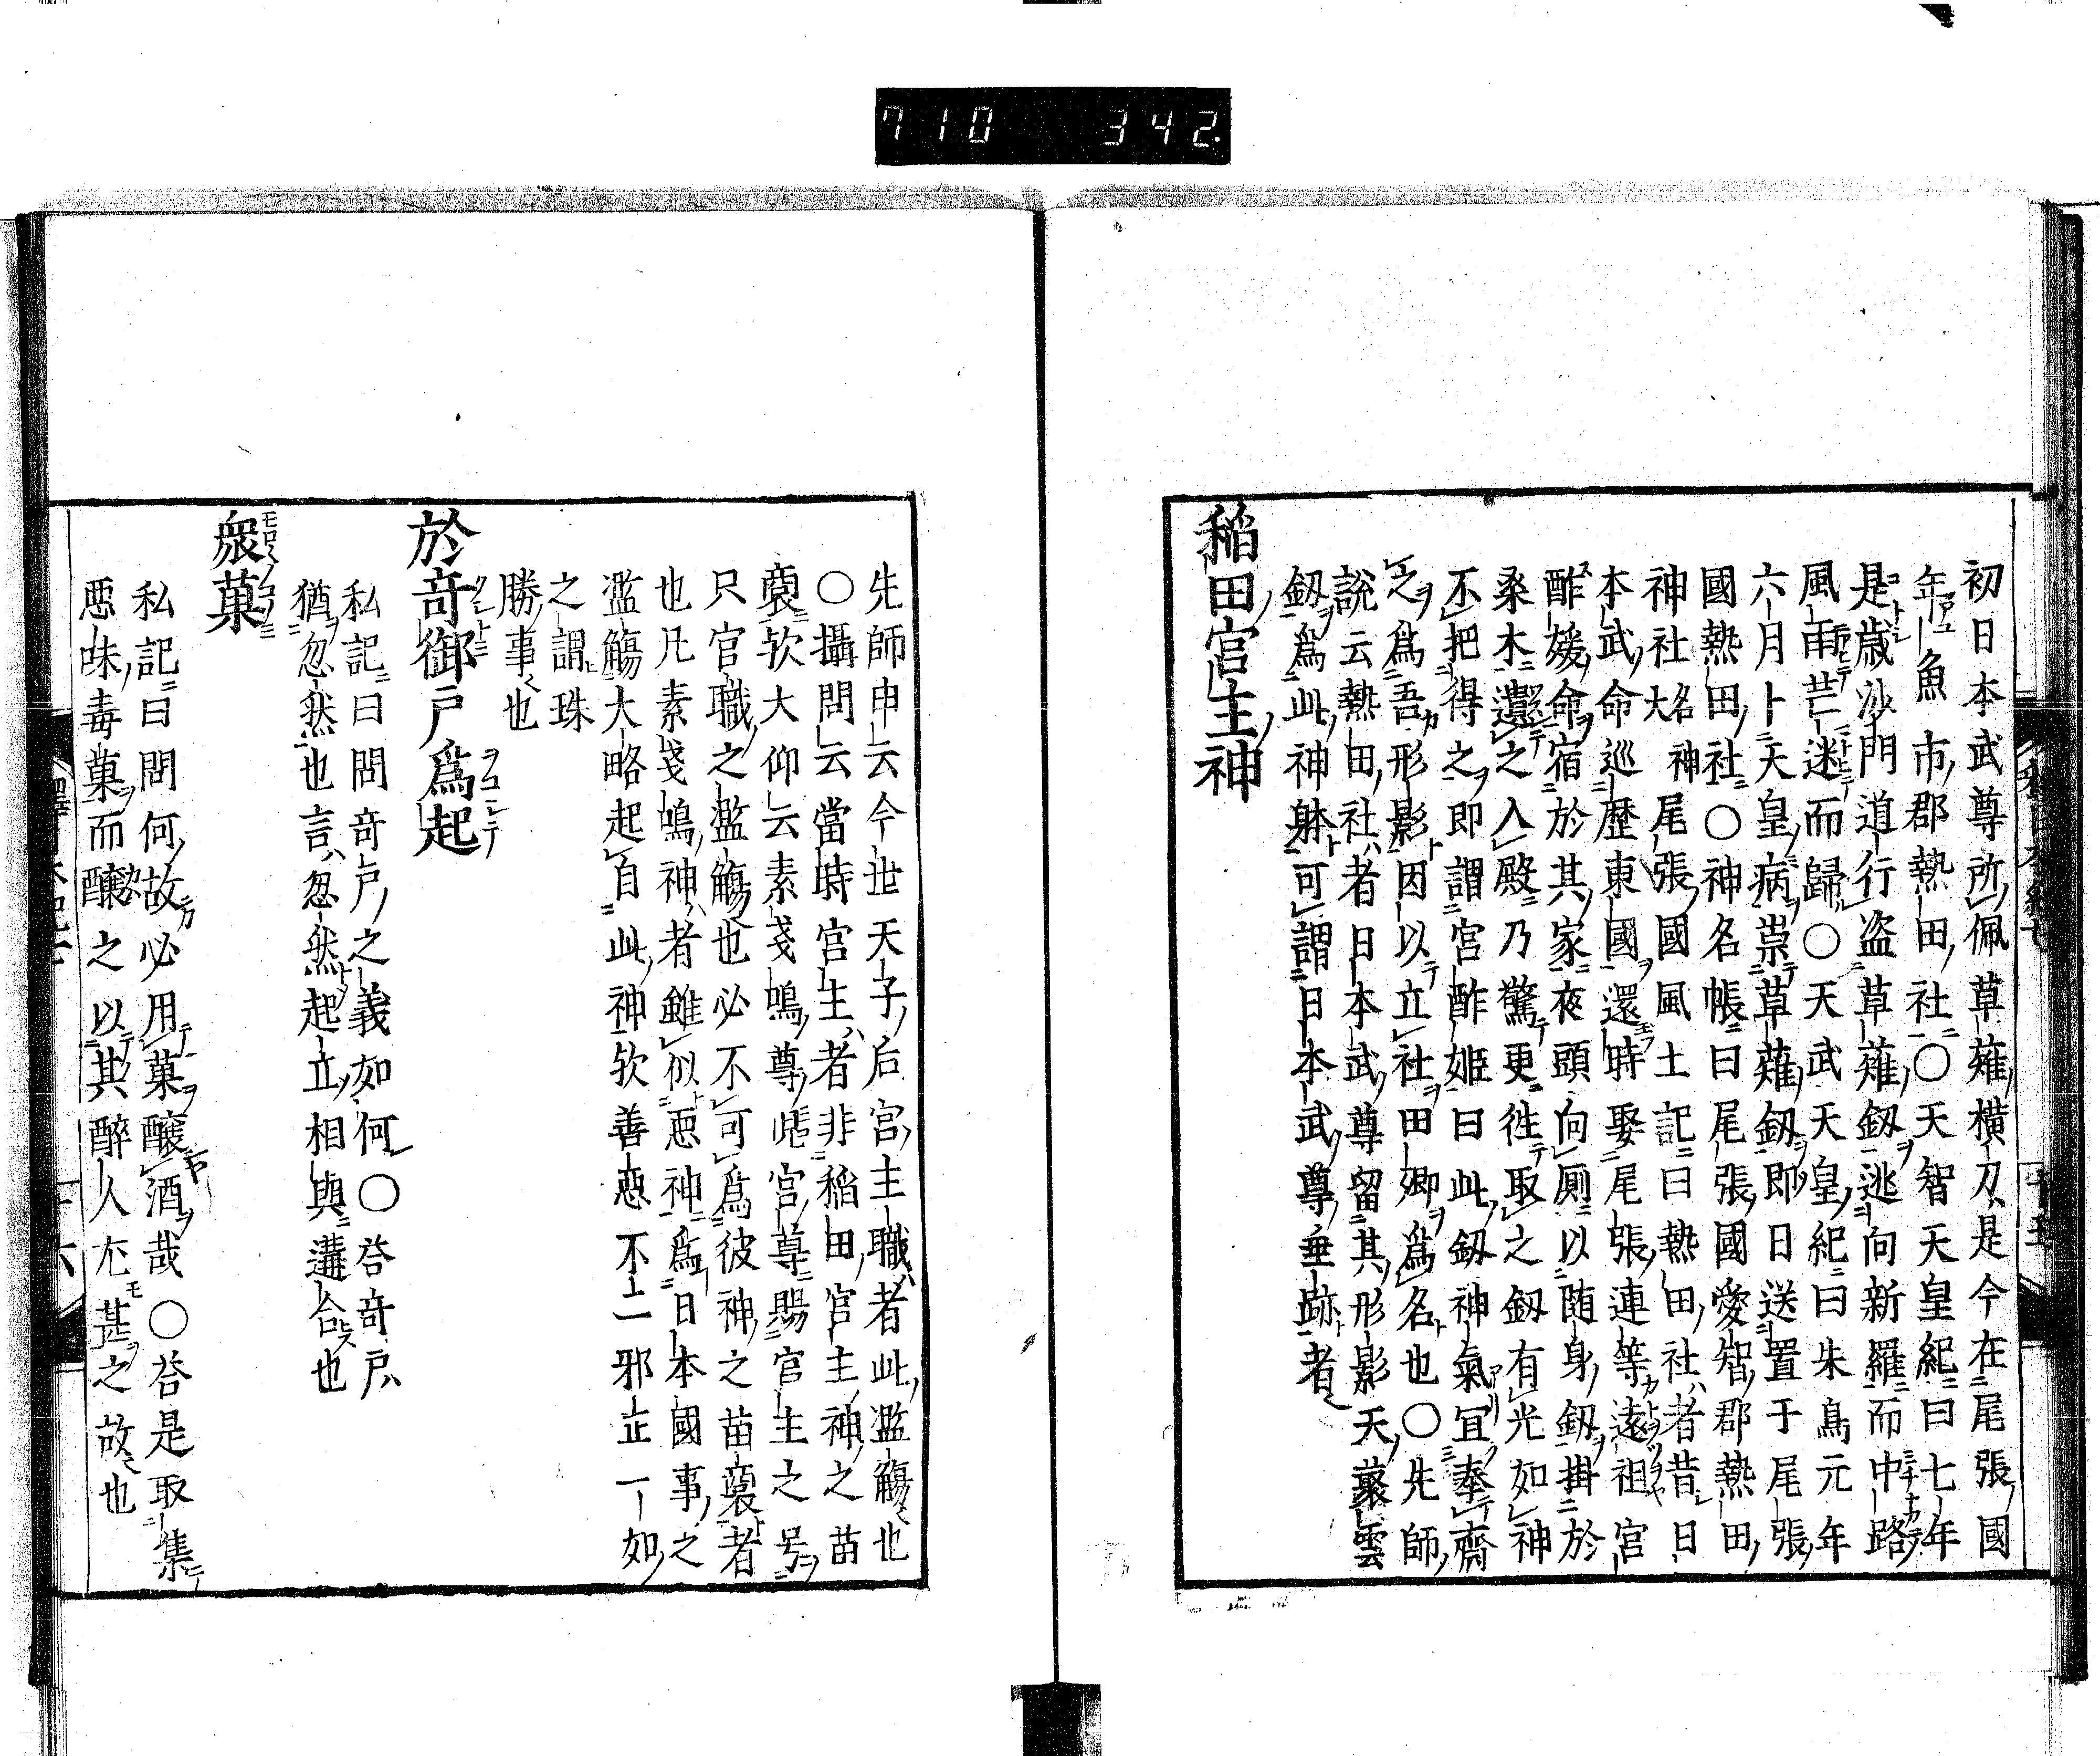 710 342
初日本武尊所佩草薙横刀是今在尾張國
年魚市郡熱田社○天智天皇紀曰七年
是歳沙門道行盗草薙釼逃向新羅而中路
風雨芒迷而歸○天武天皇紀曰朱鳥元年
六月卜天皇病祟草薙釼即日送置于尾張
國熱田社○神名帳曰尾張國愛智郡熱田
神社名神大尾張國風土記曰熱田社者昔日
本武命巡歴東國還時娶尾張連等遠祖宮
酢媛命宿於其家夜頭向厠以随身釼掛於
桒木遺之入殿乃驚更往取之釼有光如神
不把得之即謂宮酢姫曰此釼神氣宜奉齋
之為吾形影因以立社田郷為名也○先師
説云熱田社者日本武尊留其形影天藂雲
釼為此神躰可謂日本武尊垂跡者
稲田宮主神
先師申云今世天子后宮主職者此濫觴也
○攝問云當時宮主者非稲田宮主神之苗
裔欤大仰云素戔嗚尊此宮尊賜宮主之号
只官職之濫觴也必不可為彼神之苗裔者
也凡素戔嗚神者雖似惡神為日本國事之
濫觴大略起自此神欤善惡不二邪正一如
之謂珠
勝事也
於奇御戸為起
私記曰問奇戸之義如何○答奇戸
猶忽然也言忽然起立相與遘合也
衆菓
私記曰問何故必用菓醸酒哉○答是取集
惡味毒菓而醸之以其醉人尤甚之故也
十六